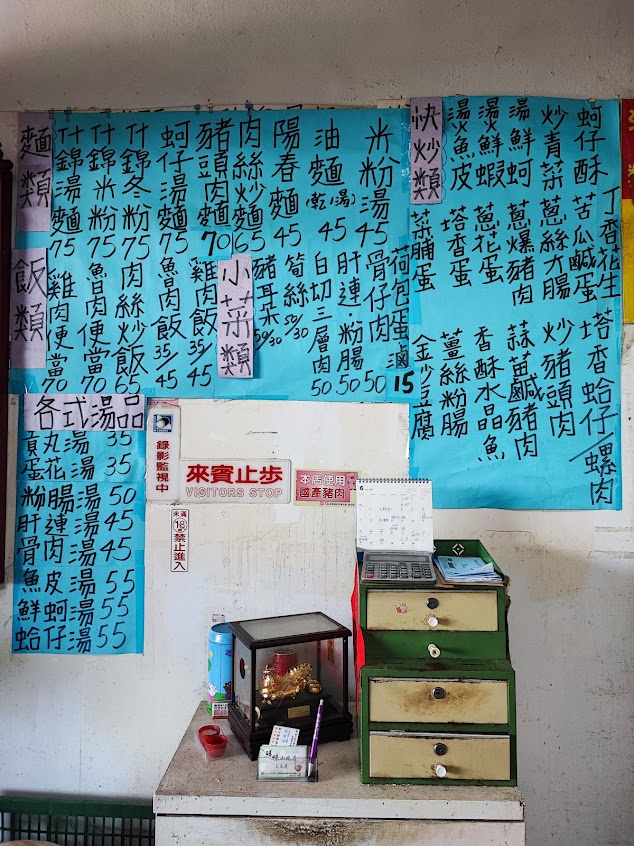 麵類
什錦湯麵 75
什錦米粉 75
什錦冬粉 75
蚵仔湯麵 75
豬頭肉麵 70
肉絲炒麵 65
陽春麵 45
油麵(乾/湯) 45
米粉湯 45
飯類
雞肉便當 70
魯肉便當 70
肉絲炒飯 65
魯肉飯 35/45
雞肉飯 35/45
小菜類
豬耳朵 50/30
筍絲 50/30
白切三層肉 50
肝連·粉腸 50
骨仔肉 50
荷包蛋 滷 15
快炒類
湯魚皮
湯鮮蝦
湯鮮蚵
炒青菜
蚵仔酥
丁香花生
菜脯蛋
塔香蛋
蔥花蛋
蔥爆豬肉
蔥絲大腸
苦瓜鹹蛋
金沙豆腐
薑絲粉腸
香酥水晶魚
蒜苗鹹豬肉
炒豬頭肉
塔香蛤仔/螺肉
各式湯品
貢丸湯 35
蛋花湯 35
粉腸湯 50
肝連湯 45
骨肉湯 45
魚皮湯 55
鮮蚵湯 55
蛤仔湯 55
錄影監視中
來賓止步
VISITORS STOP
本店使用
國產豬肉
未滿
18
禁止進入